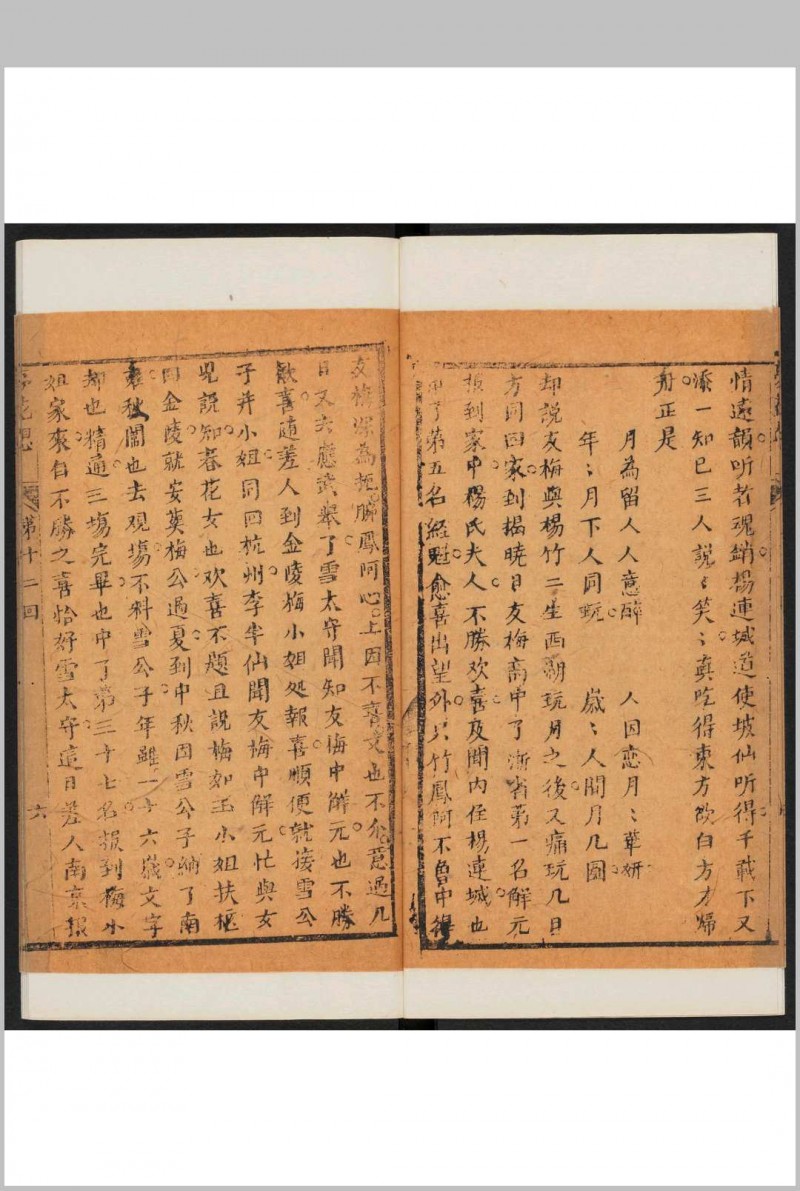 情遠韻听者魂銷楊連城道使坡仙听得千載下又
添一知已三人說〻笑〻真吃得東方欲白方才歸
舟正是
月為留人人意醉　人因恋月〻華妍
年〻月下人同玩　歲〻人間月几圓
却說友梅與楊竹二生西湖玩月之後又痛玩几日
方同回家到揭曉日友梅高中了浙省第一名解元
報到家中楊氏夫人不勝欢喜及聞內侄楊連城也
中了第五名經魁愈喜出望外只竹鳳阿不曾中得
友梅深為扼腕鳳阿心上因不喜文也不介意過几
日又去應武舉了雪太守聞知友梅中解元也不勝
歡喜随差人到金陵梅小姐处報喜順便就接雪公
子并小姐同回杭州李半仙聞友梅中解元忙與女
兒說知春花女也欢喜不題且說梅如玉小姐扶柩
回金陵就安葬梅公過夏到中秋因雪公子納了南
雍秋闈也去观場不料雪公子年雖一十六歲文字
却也精通三塲完畢也中了第三十七名報到梅小
姐家來自不勝之喜恰好雪太守這日差人南京報
花
第十二回
六